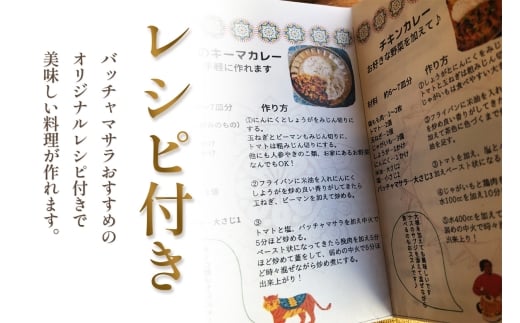 レシピ付き
バッチャマサラおすすめの
オリジナルレシピ付きで
美味しい料理が作れます。
のキーマカレー
手軽に作れます
約6〜7皿分
作り方
①にんにくとしょうがをみじん切りに
する。
玉ねぎとピーマンもみじん切りに、
トマトは粗みじん切りに。
他にも人参やきのこ類、お家にあるお野菜
なんでもOK！
②フライパンに米油を入れにんにく
しょうがを炒め良い香りがしてきたら
玉ねぎ、ピーマンを加えて炒める。
③
トマトと塩、バッチャマサラを加え中火で
5分ほど炒める。
ペースト状になってきたら挽肉を加え5分
ほど炒めて蓋をして、弱めの中火で5分
ほど時々混ぜながら炒め煮にする。
出来上がり！
大さじ1
チキンカレー
お好きな野菜を加えて♪
材料 約6〜7皿分
作り方
①にんにくとしょうがをみ
トマトと玉ねぎは粗みじん
じゃがいもは食べやすい大
②フライパンに米油を入れ
しょうがを炒め良い香りが
③トマトを加え、塩と
を加えペースト状になる
④じゃがいもと鶏肉を
水100ccを加え10分
⑤水400ccを加え
弱めの中火で時々
出来上がり！
バッチャマサラ…大さじ3